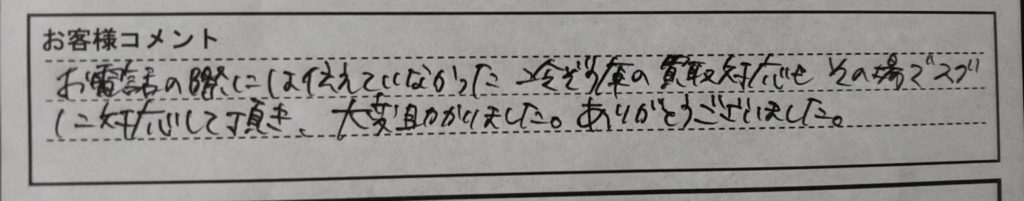 お客様コメント
お電話の際には伝えていなかった冷ぞう庫の買取対応もその場でスグ
に対応して頂き、大変助かりました。ありがとうございました。